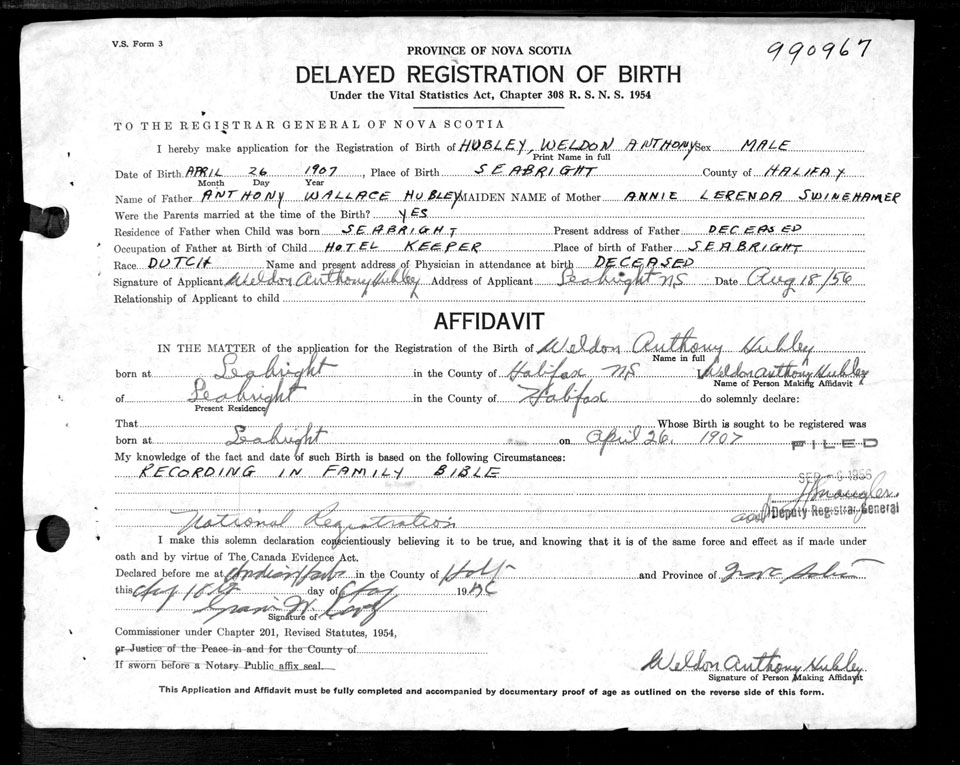 V.S. Form 3
990967
PROVINCE OF NOVA SCOTIA
DELAYED REGISTRATION OF BIRTH
Under the Vital Statistics Act, Chapter 308 R. S. N. S. 1954
TO THE REGISTRAR GENERAL OF NOVA SCOTIA
I hereby make application for the Registration of Birth of HUBLEY, WELDON ANTHONY Sex MALE
Print Name in full
Date of Birth APRIL 26 1907, Place of Birth SEABRIGHT County of HALIFAX
Month Day Year
Name of Father ANTHONY WALLACE HUBLEY MAIDEN NAME of Mother ANNIE LERENDA SWINEHAMER
Were the Parents married at the time of the Birth? YES
Residence of Father when Child was born SEABRIGHT Present address of Father DECEASED
Occupation of Father at Birth of Child HOTEL KEEPER Place of birth of Father SEABRIGHT
Race DUTCH Name and present address of Physician in attendance at birth DECEASED
Signature of Applicant Weldon Anthony Hubley Address of Applicant Seabright NS Date Aug 18/56
Relationship of Applicant to child
AFFIDAVIT
IN THE MATTER of the application for the Registration of the Birth of Weldon Anthony Hubley
Name in full
born at Seabright in the County of Halifax NS I, Weldon Anthony Hubley
Name of Person Making Affidavit
of Seabright in the County of Halifax do solemnly declare:
Present Residence
That Whose Birth is sought to be registered was
born at Seabright on April 26. 1907
FILED
My knowledge of the fact and date of such Birth is based on the following Circumstances:
RECORDING IN FAMILY BIBLE
SEP 1956
Deputy Registrar General
National Registration
I make this solemn declaration conscientiously believing it to be true, and knowing that it is of the same force and effect as if made under
oath and by virtue of The Canada Evidence Act.
Declared before me at in the County of and Province of Nova Scotia
this day of 19
Signature of
Commissioner under Chapter 201, Revised Statutes, 1954,
or Justice of the Peace in and for the County of
If sworn before a Notary Public affix seal.
Weldon Anthony Hubley
Signature of Person Making Affidavit
This Application and Affidavit must be fully completed and accompanied by documentary proof of age as outlined on the reverse side of this form.